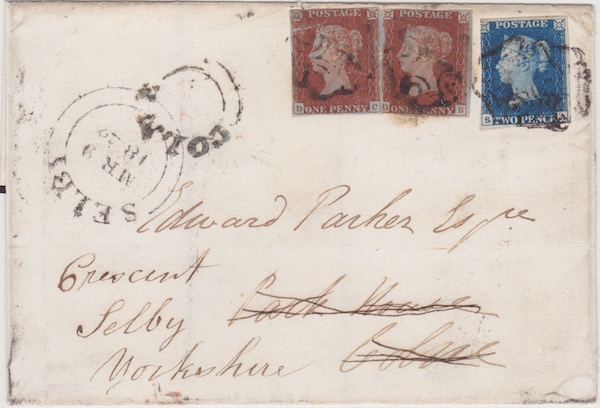 POSTAGE POSTAGE POSTAGE
D ONE PENNY C D ONE PENNY B S TWO PENCE A
COLNE
SELBY
MR 9
Edward Parker Esqre
Crescent Park House
Selby Colne
Yorkshire